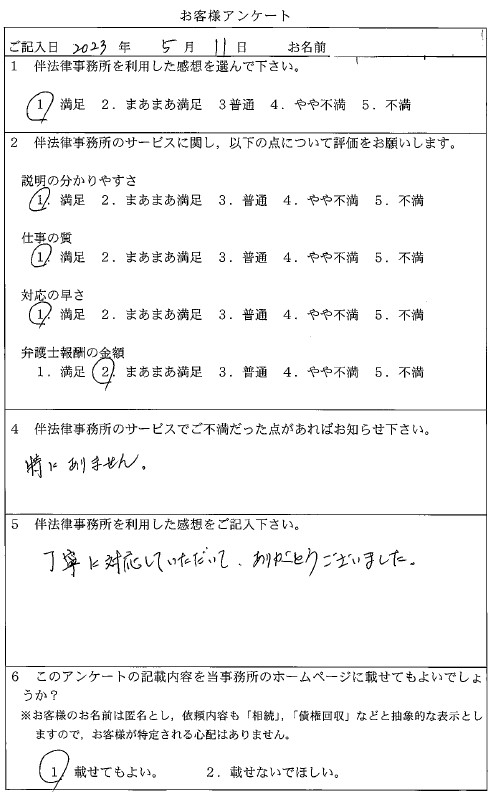 お客様アンケート
ご記入日 2023 年 5 月 11 日 お名前
1 伴法律事務所を利用した感想を選んで下さい。
1 満足 2．まあまあ満足 3 普通 4．やや不満 5．不満
2 伴法律事務所のサービスに関し，以下の点について評価をお願いします。
説明の分かりやすさ
1．満足 2．まあまあ満足 3．普通 4．やや不満 5．不満
仕事の質
1．満足 2．まあまあ満足 3．普通 4．やや不満 5．不満
対応の早さ
1．満足 2．まあまあ満足 3．普通 4．やや不満 5．不満
弁護士報酬の金額
1．満足 2．まあまあ満足 3．普通 4．やや不満 5．不満
4 伴法律事務所のサービスでご不満だった点があればお知らせ下さい。
特にありません。
5 伴法律事務所を利用した感想をご記入下さい。
丁寧に対応していただいて、ありがとうございました。
6 このアンケートの記載内容を当事務所のホームページに載せてもよいでしょ
うか？
※お客様のお名前は匿名とし，依頼内容も「相続」，「債権回収」などと抽象的な表示とし
ますので，お客様が特定される心配はありません。
1．載せてもよい。 2．載せないでほしい。